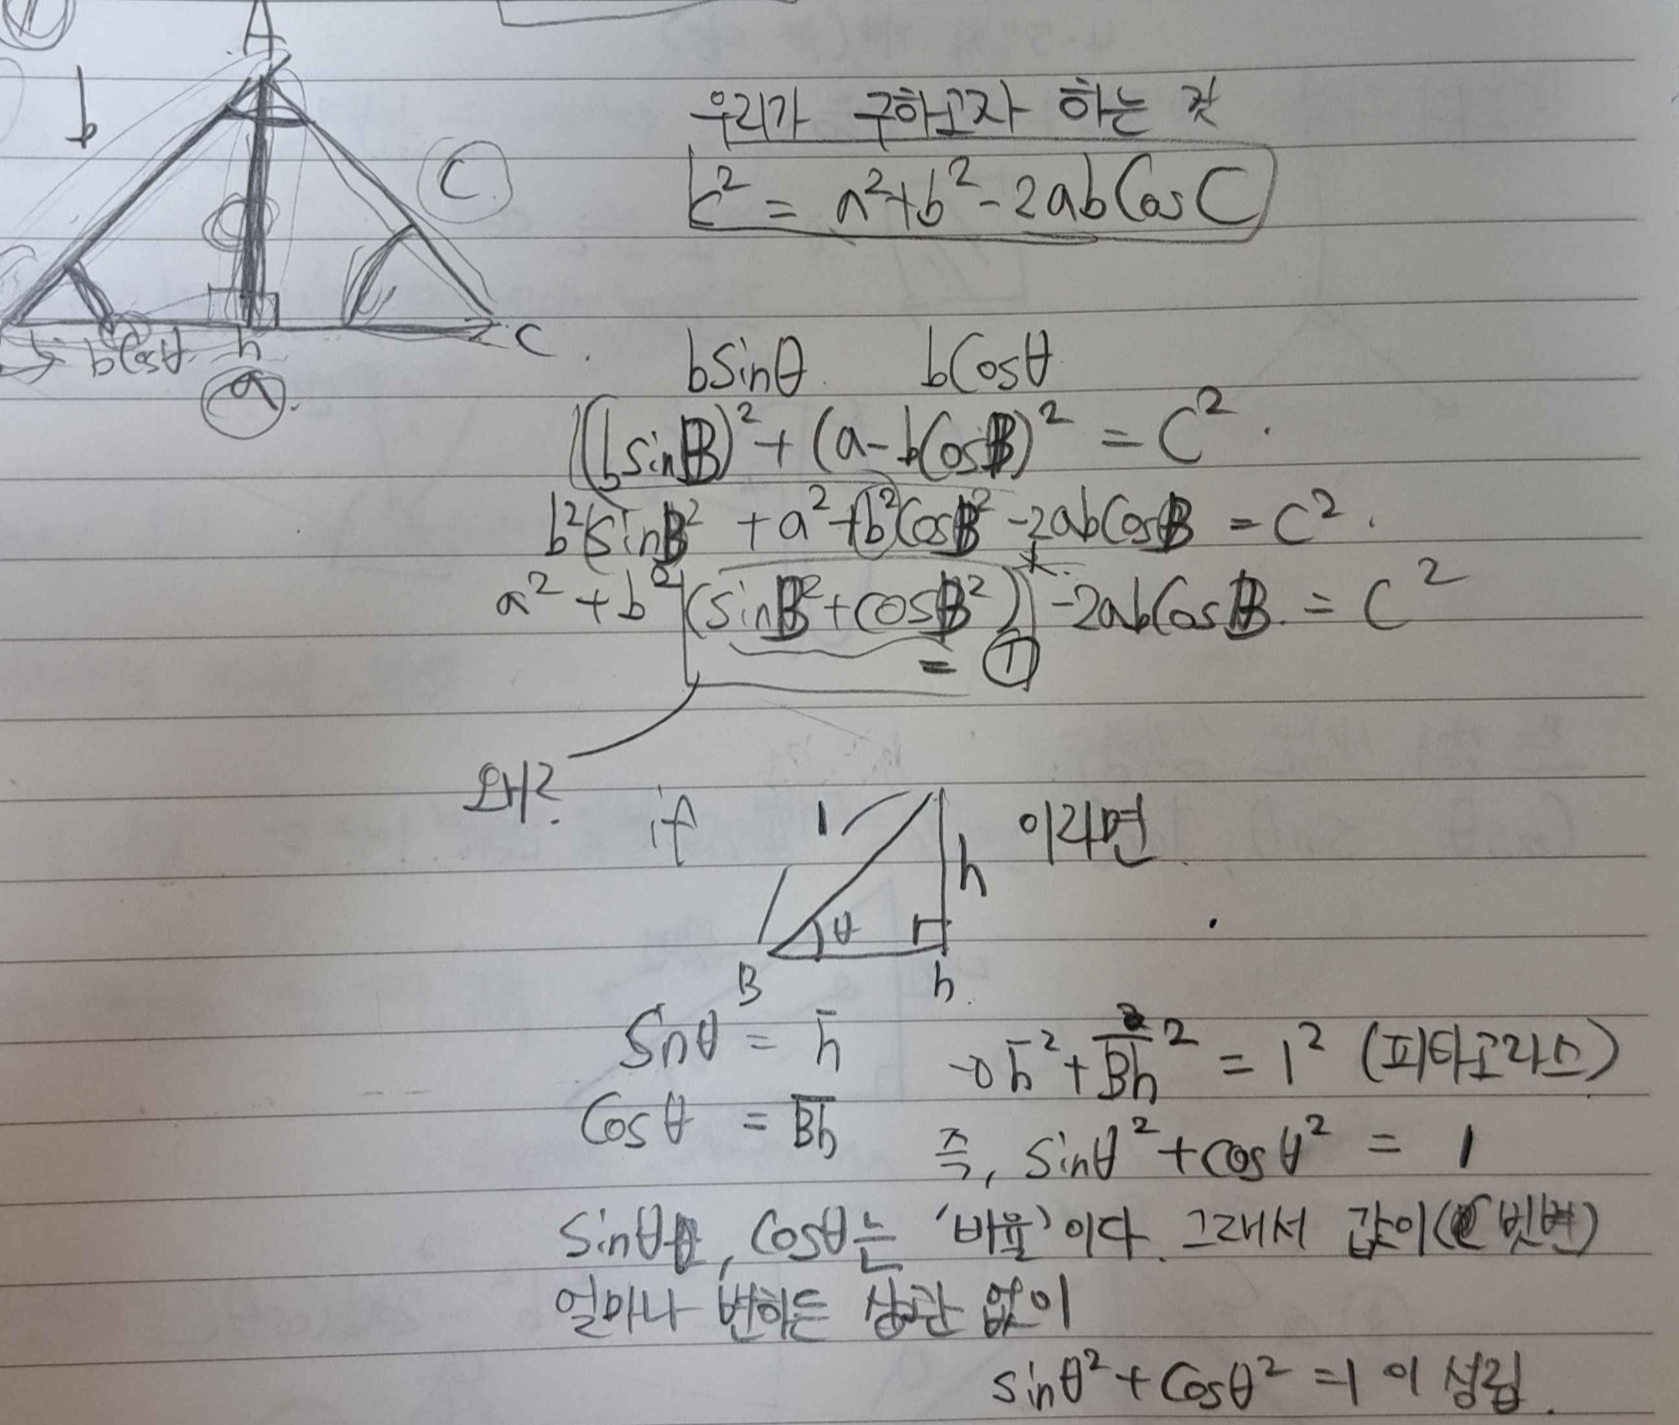 A
b
우리가 구하고자 하는 것
C
c² = a²+b²-2abCosC
bCosθ h C
a
bsinθ bCosθ
(bsinB)²+(a-bCosB)² = C²
b²sinB² +a²+b²CosB²-2abCosB = C²
a²+b²(sinB²+cosB²)-2abCosB = C²
= 1
왜?
if 1 이라면
h
θ
B h
Sinθ = h̅ → h̅²+B̅h̅² = 1² (피타고라스)
Cosθ = B̅h̅
즉, sinθ²+cosθ² = 1
Sinθ, Cosθ는 '비율'이다. 그래서 값이(빗변)
얼마나 변하든 상관 없이
sinθ²+Cosθ²=1 이 성립.